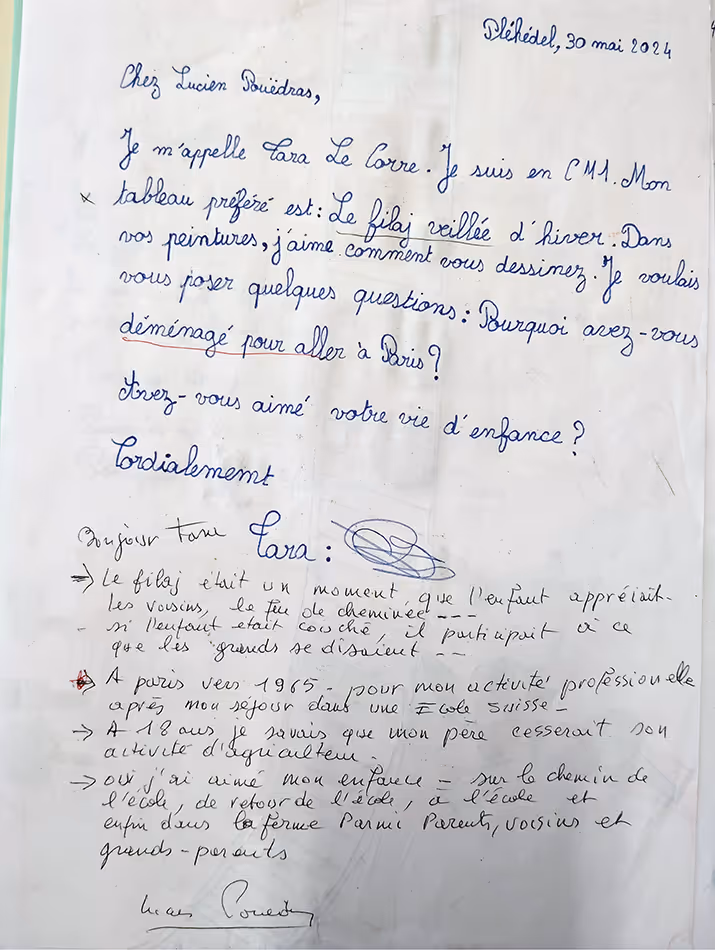 Pléhédel, 30 mai 2024
Chez Lucien Pouëdras,
Je m'appelle Tara Le Corre. Je suis en CM1. Mon
x tableau préféré est : Le filaj veillée d'hiver. Dans
vos peintures, j'aime comment vous dessinez. Je voulais
vous poser quelques questions : Pourquoi avez-vous
déménagé pour aller à Paris ?
Avez-vous aimé votre vie d'enfance ?
Cordialememt
Tara :
Bonjour Tara
→ Le filaj était un moment que l'enfant appréiait.
les voisins, le feu de cheminée ---
- si l'enfant etait couché, il participait à ce
que les grands se disaient --
→ A paris vers 1965 - pour mon activité professionelle
après mon séjour dans une Ecole suisse -
→ A 18 ans je savais que mon père cesserait son
activité d'agriculteur.
→ oui j'ai aimé mon enfance - sur le chemin de
l'école, de retour de l'école, à l'école et
enfin dans la ferme Parmi Parents, voisins et
grands-parents